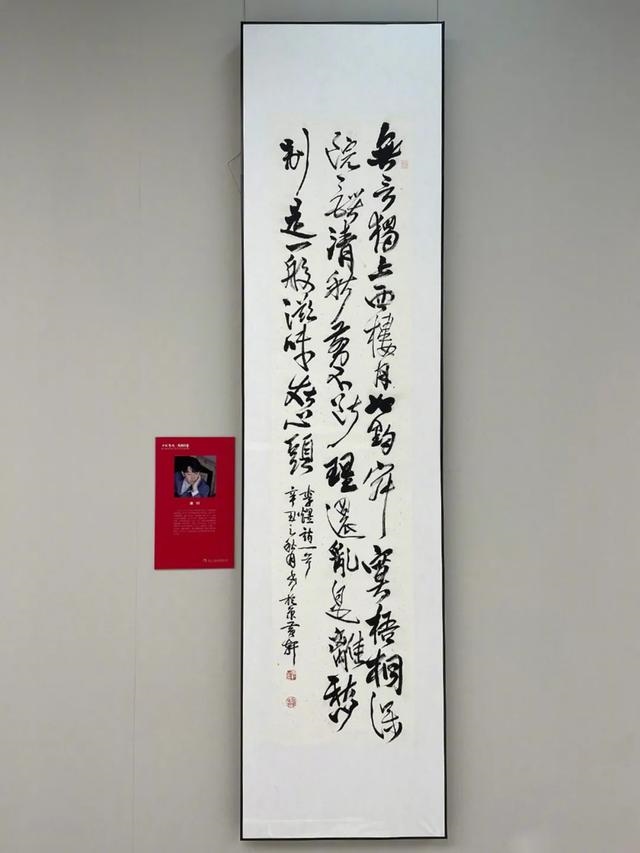 無言獨上西樓月如鈎寂寞梧桐深
院鎖清秋剪不断理還亂是離愁
别是一般滋味在心頭
李煜詞一首
辛丑之秋月書於京